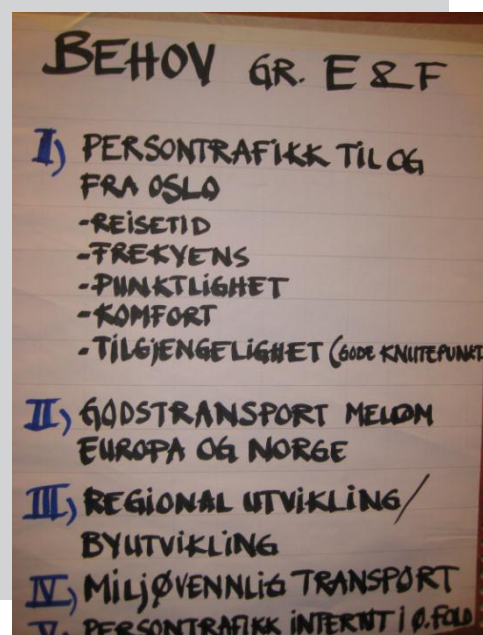 BEHOV GR. E & F
I) PERSONTRAFIKK TIL OG
FRA OSLO
-REISETID
-FREKVENS
-PUNKTLIGHET
-KOMFORT
-TILGJENGELIGHET (GODE KNUTEPUNKT
II) GODSTRANSPORT MELOM
EUROPA OG NORGE
III) REGIONAL UTVIKLING/
BYUTVIKLING
IV) MILJØVENNLIG TRANSPORT
V. PERSONTRAFIKK INTERNT I Ø.FOLD